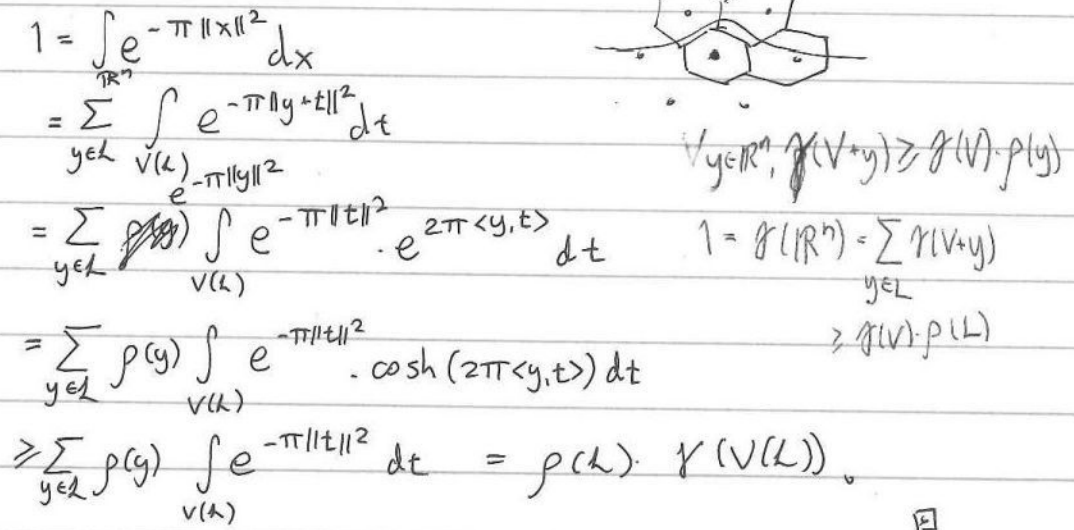 1 = ∫_{ℝⁿ} e^{-π‖x‖²} dx
= Σ_{y∈L} ∫_{V(L)} e^{-π‖y+t‖²} dt
= Σ_{y∈L} e^{-π‖y‖²} ∫_{V(L)} e^{-π‖t‖²} · e^{2π<y,t>} dt
= Σ_{y∈L} ρ(y) ∫_{V(L)} e^{-π‖t‖²} · cosh(2π<y,t>) dt
≥ Σ_{y∈L} ρ(y) ∫_{V(L)} e^{-π‖t‖²} dt = ρ(L) · γ(V(L)).
∀y∈ℝⁿ, γ(V+y) ≥ γ(V)·ρ(y)
1 = γ(ℝⁿ) = Σ_{y∈L} γ(V+y)
≥ γ(V)·ρ(L)